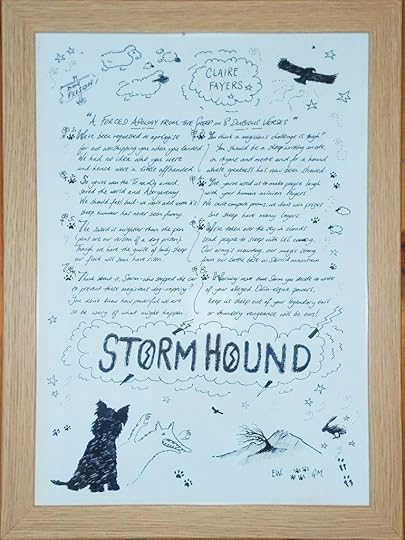 DOG PRISON!
CLAIRE
FAYERS
"A FORCED APOLOGY FROM THE SHEEP IN 8 DUBIOUS VERSES"
1. We've been requested to apologise
for not worshipping you when you landed.
We had no idea what you were
and hence were a little offhanded.
saved the world and Abergavenny
We should feel but we
sheep humour has never been funny.
3. The sword is mightier than the pen
(pens are our version of a dog prison).
Though we have the guilt of sheep
our flock will soon have risen.
4. Think about it, Storm - who stopped the car
to prevent those magicians dog-napping?
You don't know how powerful we are
so be wary of what might happen.
5. You think a magician's challenge is tough?
You should be a sheep writing an ode,
in rhyme and metre and for a hound
whose greatness has now been showed.
6. Yet you've used us to make people laugh
with your human minions
We can't compose poems, we don't win prizes
but sheep have many layers.
7. We've taken over the sky in clouds
send people to sleep with US counting.
Our army's mounting, our magic strong
from our bottle base on Skirrid mountain
8. Warning: next time Storm you decide to write
of your alleged Odin-esque powers,
keep us sheep out of your legendary tail
or thundery vengeance will be ours!
STORMHOUND
EW.
GM.